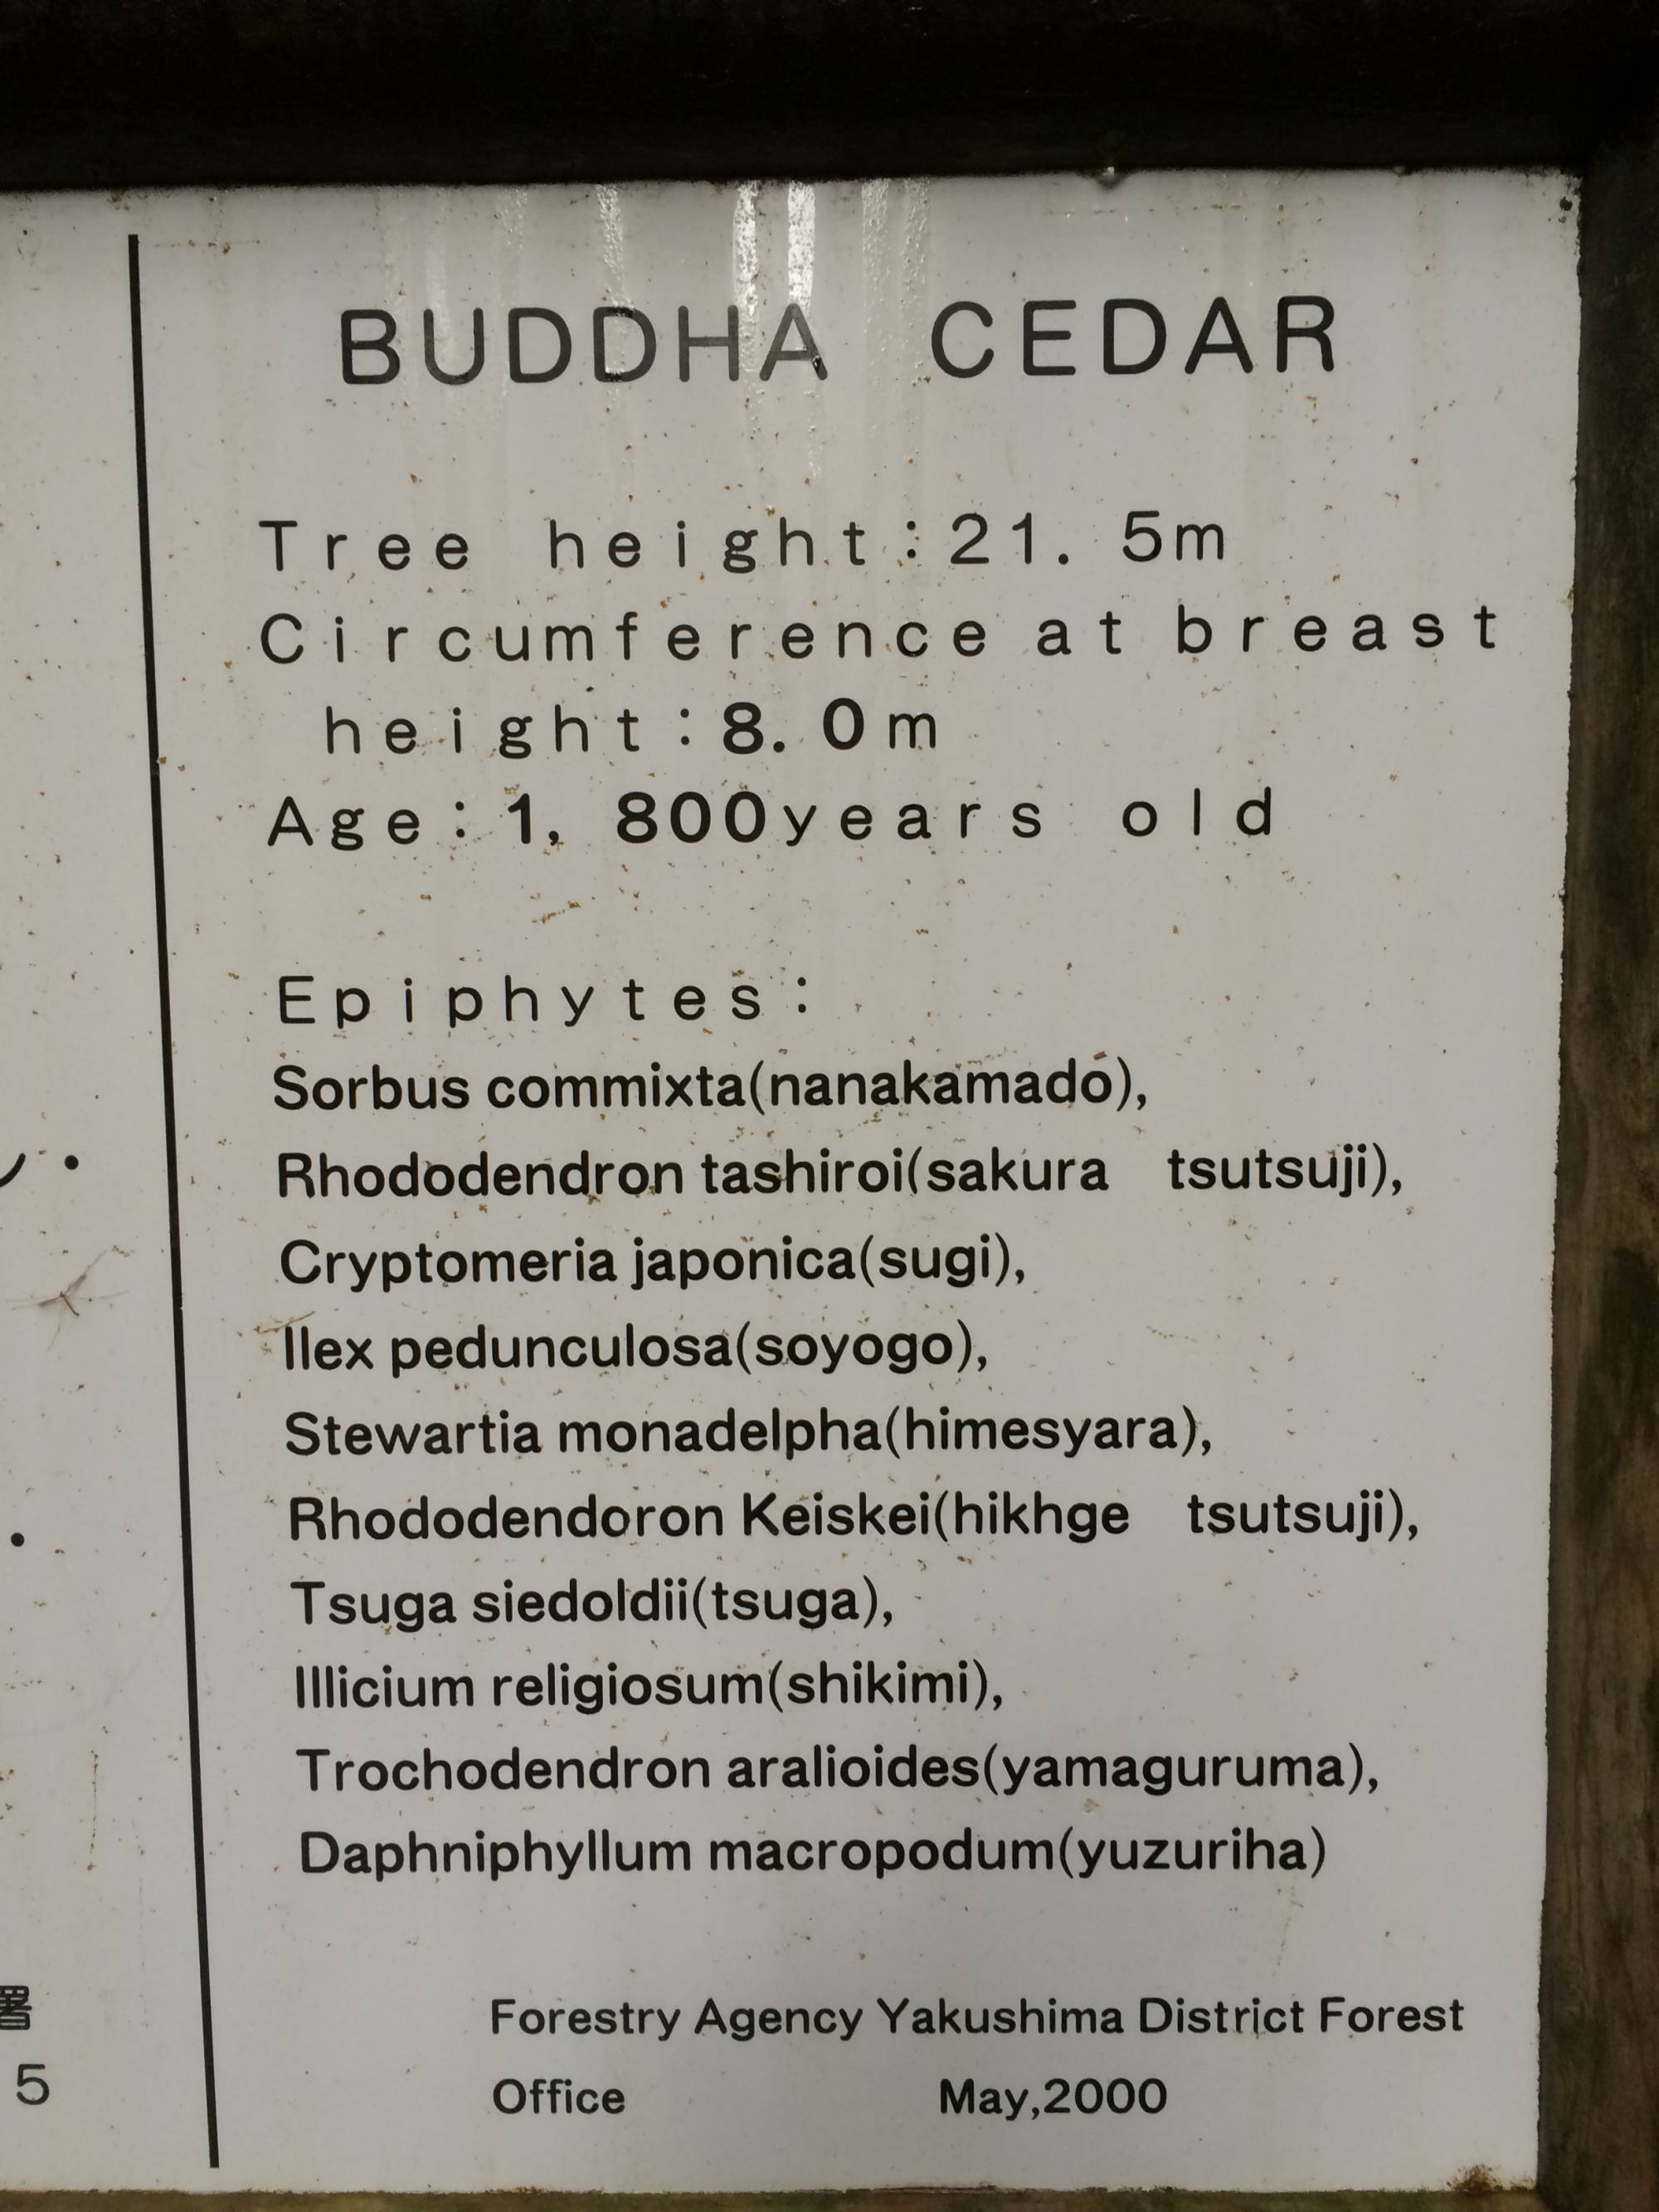 BUDDHA CEDAR
Tree height:21.5m
Circumference at breast
height:8.0m
Age:1,800years old
Epiphytes:
Sorbus commixta(nanakamado),
Rhododendron tashiroi(sakura tsutsuji),
Cryptomeria japonica(sugi),
Ilex pedunculosa(soyogo),
Stewartia monadelpha(himesyara),
Rhododendoron Keiskei(hikhge tsutsuji),
Tsuga siedoldii(tsuga),
Illicium religiosum(shikimi),
Trochodendron aralioides(yamaguruma),
Daphniphyllum macropodum(yuzuriha)
Forestry Agency Yakushima District Forest
Office May,2000
署
5